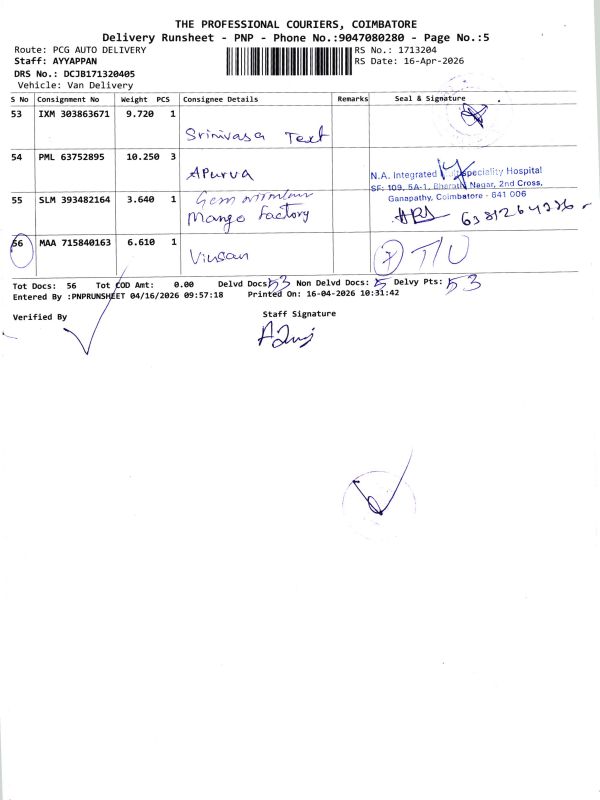 THE PROFESSIONAL COURIERS, COIMBATORE
Delivery Runsheet - PNP - Phone No.:9047080280 - Page No.:5
Route: PCG AUTO DELIVERY
RS No.: 1713204
Staff: AYYAPPAN
RS Date: 16-Apr-2026
DRS No.: DCJB171320405
Vehicle: Van Delivery
S No Consignment No Weight PCS Consignee Details Remarks Seal & Signature
53 IXM 303863671 9.720 1
Srinivasa Text
54 PML 63752895 10.250 3
Apurva
N.A. Integrated Multispeciality Hospital
SF: 109, 5A-1, Bharathi Nagar, 2nd Cross,
Ganapathy, Coimbatore - 641 006
55 SLM 393482164 3.640 1
Mango factory
56 MAA 715840163 6.610 1
Vinsan
7 T/U
Tot Docs: 56 Tot COD Amt: 0.00 Delvd Docs: 53 Non Delvd Docs: 5 Delvy Pts: 53
Entered By :PNPRUNSHEET 04/16/2026 09:57:18 Printed On: 16-04-2026 10:31:42
Verified By
Staff Signature